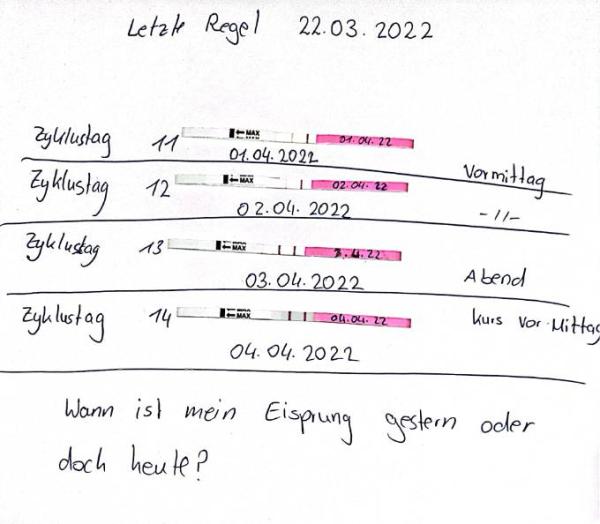 Letzte Regel 22.03.2022
Zyklustag 11 ← MAX 01.04.22
01.04.2022 Vormittag
Zyklustag 12 ← MAX 02.04.22
02.04.2022 -//-
Zyklustag 13 ← MAX 3.4.22
03.04.2022 Abend
Zyklustag 14 ← MAX 04.04.22 kurs vor Mittag
04.04.2022
Wann ist mein Eisprung gestern oder
doch heute?